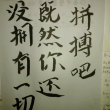 拼搏吧
既然你还
没拥有一切